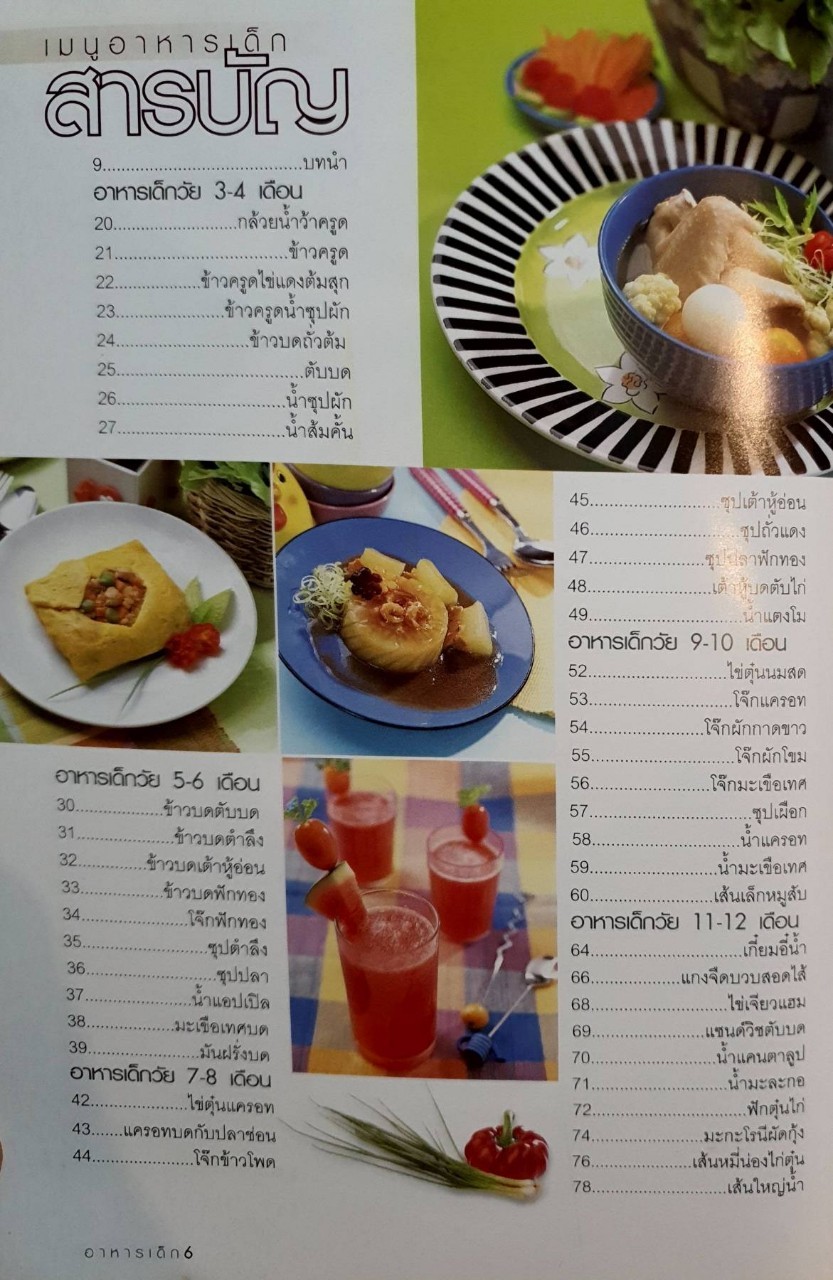 เมนูอาหารเด็ก
สารบัญ
9.......................................บทนำ
อาหารเด็กวัย 3-4 เดือน
20........................กล้วยน้ำว้าครูด
21..................................ข้าวครูด
22.................ข้าวครูดไข่แดงต้มสุก
23......................ข้าวครูดน้ำซุปผัก
24..........................ข้าวบดถั่วต้ม
25.....................................ตับบด
26.................................น้ำซุปผัก
27.................................น้ำส้มคั้น
อาหารเด็กวัย 5-6 เดือน
30.................ข้าวบดตับบด
31...................ข้าวบดตำลึง
32..............ข้าวบดเต้าหู้อ่อน
33.................ข้าวบดฟักทอง
34......................โจ๊กฟักทอง
35..........................ซุปตำลึง
36............................ซุปปลา
37......................น้ำแอปเปิล
38.................มะเขือเทศบด
39......................มันฝรั่งบด
อาหารเด็กวัย 7-8 เดือน
42...................ไข่ตุ๋นแครอท
43......แครอทบดกับปลาช่อน
44....................โจ๊กข้าวโพด
45..........................ซุปเต้าหู้อ่อน
46..............................ซุปถั่วแดง
47.......................ซุปปลาฟักทอง
48.........................เต้าหู้บดตับไก่
49.........................น้ำแตงโม
อาหารเด็กวัย 9-10 เดือน
52...........................ไข่ตุ๋นนมสด
53............................โจ๊กแครอท
54.......................โจ๊กผักกาดขาว
55.............................โจ๊กผักโขม
56........................โจ๊กมะเขือเทศ
57................................ซุปเผือก
58..............................น้ำแครอท
59..........................น้ำมะเขือเทศ
60.........................เส้นเล็กหมูสับ
อาหารเด็กวัย 11-12 เดือน
64...............................เกี้ยมอี๋น้ำ
66..................แกงจืดบวบสอดไส้
68...........................ไข่เจียวแฮม
69.......................แซนด์วิชตับบด
70.........................น้ำแคนตาลูป
71...........................น้ำมะละกอ
72...............................ฟักตุ๋นไก่
74......................มะกะโรนีผัดกุ้ง
76....................เส้นหมี่น่องไก่ตุ๋น
78...........................เส้นใหญ่น้ำ
อาหารเด็ก6